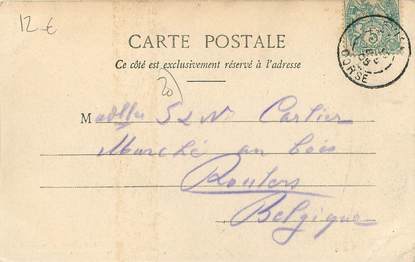 12 -€
CARTE POSTALE
Ce côté est exclusivement réservé à l'adresse
20
Madlles S & N Cartier
Marché au bois
Roulers
Belgique
CORSE